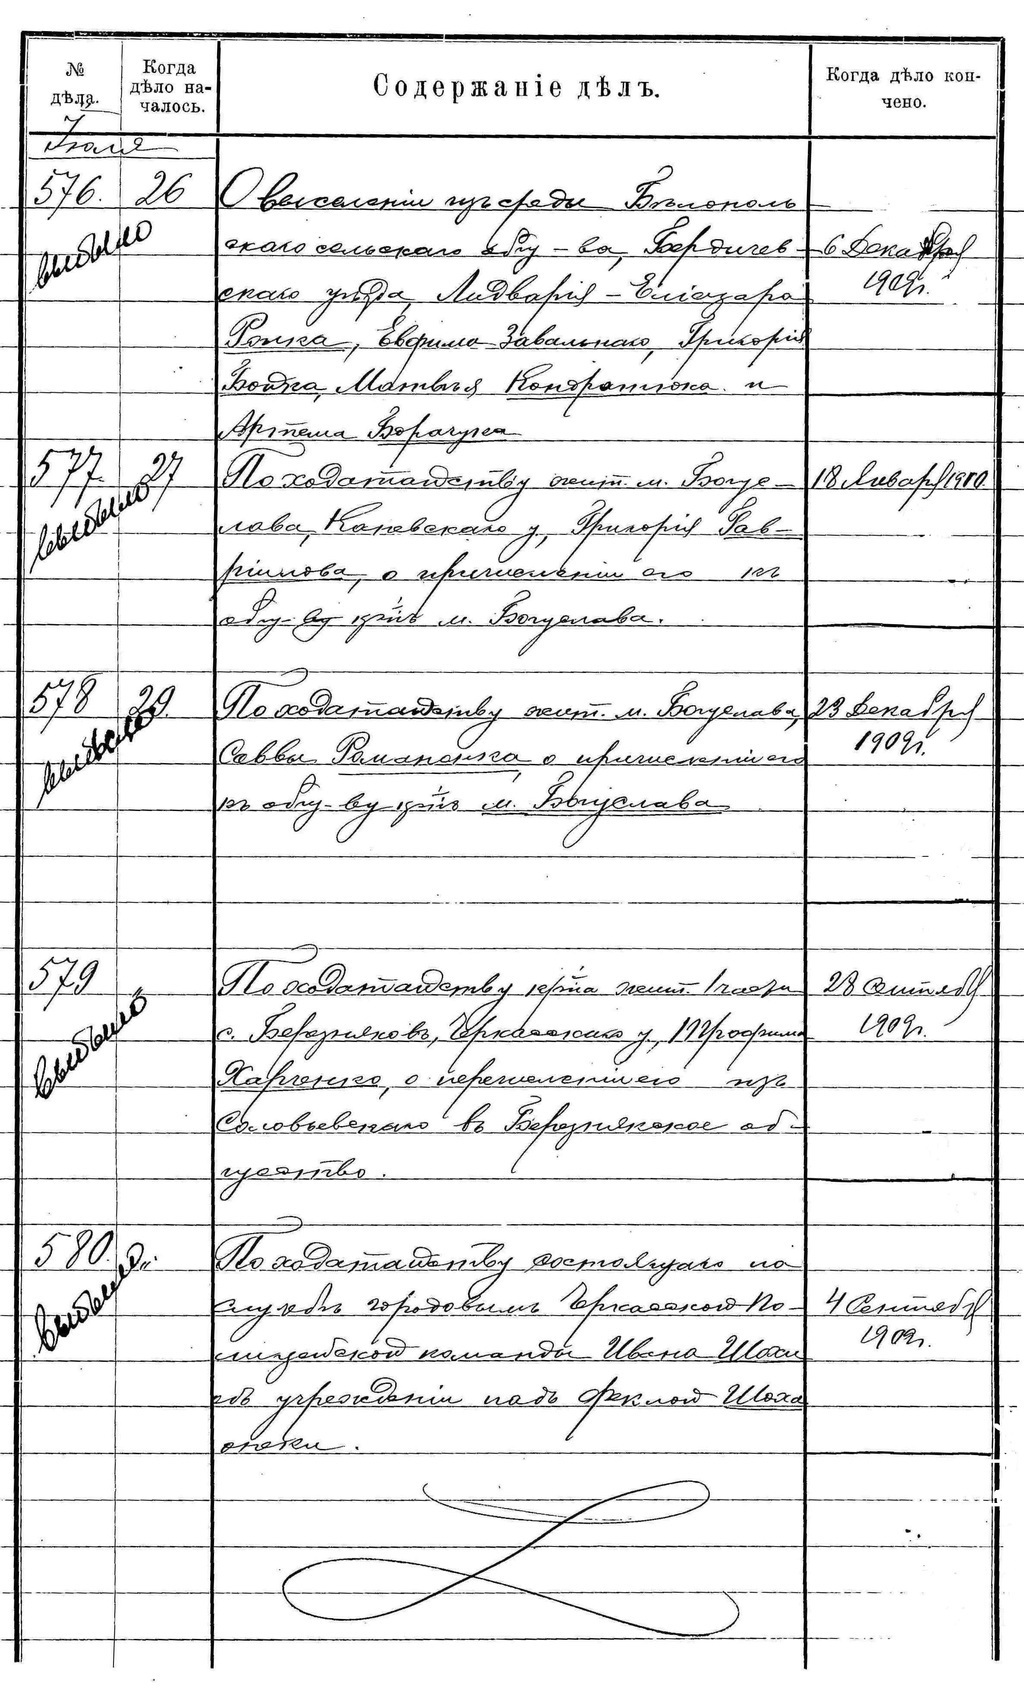 № дѣла.
Когда дѣло началось.
Содержаніе дѣлъ.
Когда дѣло кончено.
Іюля
576. 26 О выселеніи изъ среды Бѣлополь
скаго сельскаго общ-ва, Бердичев- 6 Декабря
скаго уѣзда, 1909г.
Евфима Завальнаго, Григорія
Бойка, Матвѣя Кондратюка и
Артема
выбыло
577. 27 По ходатайству жит. м. Богу- 18 Января 1910.
слава, Каневскаго у, Григорія Гав-
риилова, о причисленіи его къ
общ-ву кр-нъ м. Богуслава.
выбыло
578 29. По ходатайству жит. м. Богуслава, 23 Декабря
Саввы Романенка, о причисленіи его 1909г.
къ общ-ву кр-нъ м. Богуслава
выбыло
579 По ходатайству кр-на жит. 1 части 28 Сентября
с. Березняковъ, Черкасскаго у, Трофима 1909г.
Харченко, о перечисленіи его изъ
Соловьевскаго въ Березнякское об-
щество.
выбыло
580. „ По ходатайству состоящаго на
службѣ городовымъ Черкасской По- 4 Сентября
лицейской команды Ивана 1909г.
объ учрежденіи надъ Феклой Шоха
опеки.
выбыло